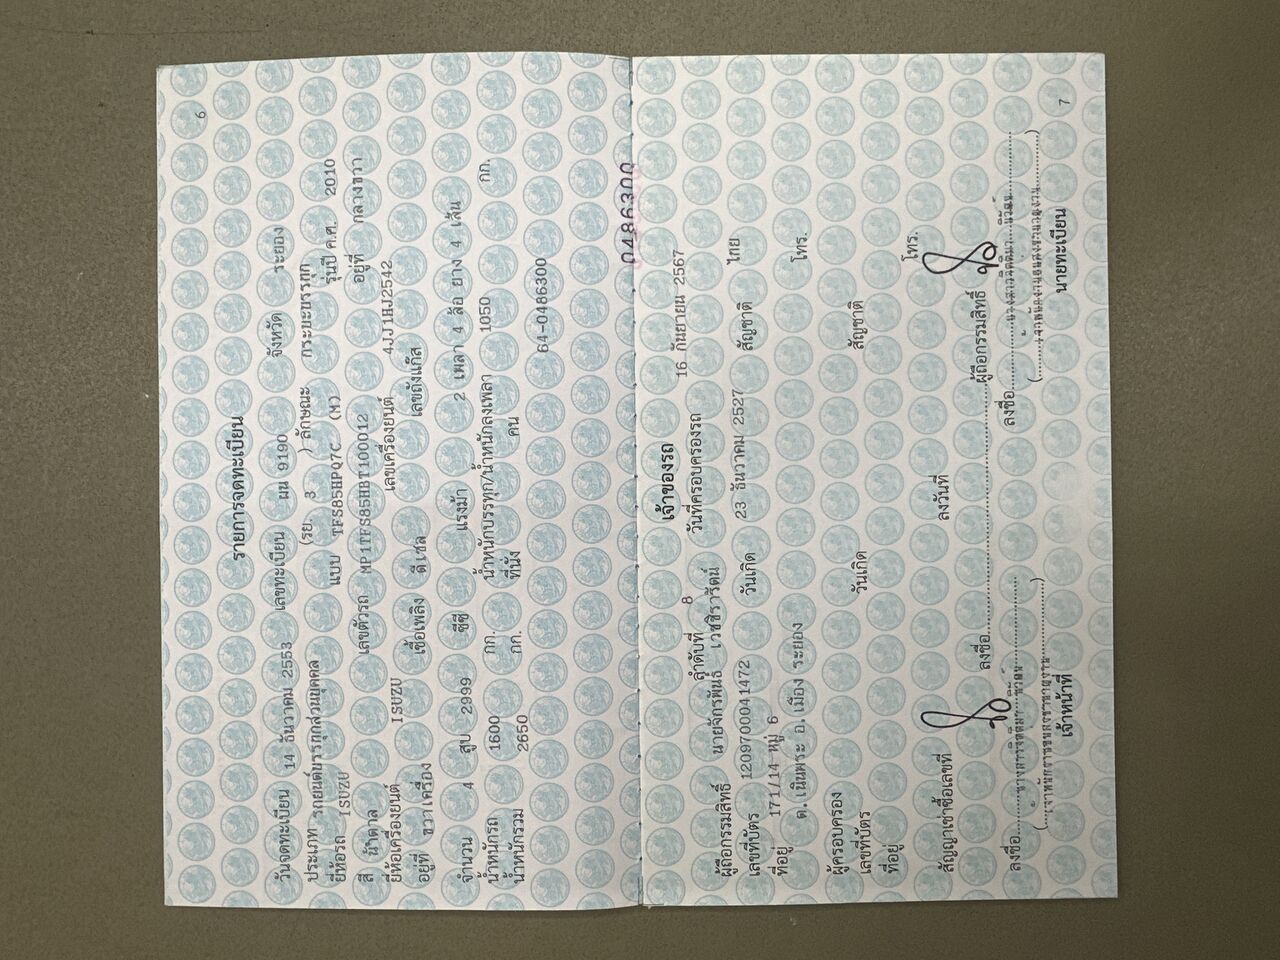 6
รายการจดทะเบียน
วันจดทะเบียน 14 ธันวาคม 2553 เลขทะเบียน ผน 9190 จังหวัด ระยอง
ประเภท รถยนต์บรรทุกส่วนบุคคล (รย. 3 ) ลักษณะ กระบะบรรทุก
ยี่ห้อรถ ISUZU แบบ TFS85HPQ7C (M) รุ่นปี ค.ศ. 2010
สี น้ำตาล เลขตัวรถ MP1TFS85HBT100012 อยู่ที่ กลางขวา
ยี่ห้อเครื่องยนต์ ISUZU เลขเครื่องยนต์ 4JJ1HJ2542
อยู่ที่ ขวาเครื่อง เชื้อเพลิง ดีเซล เลขถังแก๊ส
จำนวน 4 สูบ 2999 ซีซี แรงม้า 2 เพลา 4 ล้อ ยาง 4 เส้น
น้ำหนักรถ 1600 กก. น้ำหนักบรรทุก/น้ำหนักลงเพลา 1050 กก.
น้ำหนักรวม 2650 กก. ที่นั่ง คน
64-0486300
0486300
เจ้าของรถ
ลำดับที่ 8 วันที่ครอบครองรถ 16 กันยายน 2567
ผู้ถือกรรมสิทธิ์ นายจักรพันธ์ เวชชิรารัตน์
เลขที่บัตร 1209700041472 วันเกิด 23 ธันวาคม 2527 สัญชาติ ไทย
ที่อยู่ 171/14 หมู่ 6
ต.เนินพระ อ.เมือง ระยอง โทร.
ผู้ครอบครอง
เลขที่บัตร วันเกิด สัญชาติ
ที่อยู่
โทร.
สัญญาเช่าซื้อเลขที่ ลงวันที่
ลงชื่อ ผู้ถือกรรมสิทธิ์
ลงชื่อ ลงชื่อ
เจ้าหน้าที่ นายทะเบียน
7